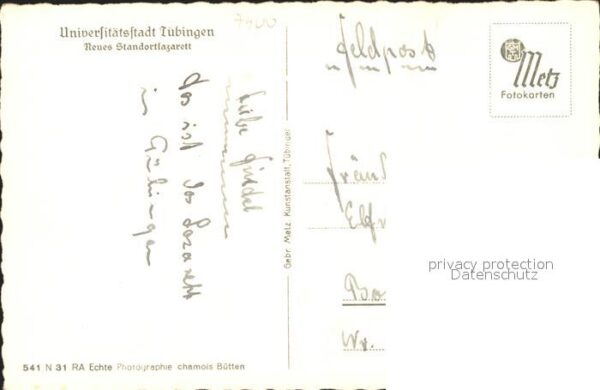 Universitätsstadt Tübingen
Neues Standortlazarett
7400
Liebe
das ist das Lazarett
in Tübingen
Gebr. Metz, Kunstanstalt, Tübingen
Feldpost
Metz
Fotokarten
Fräul
Elfr
Bo
Wr.
privacy protection
Datenschutz
541 N 31 RA Echte Photographie chamois Bütten